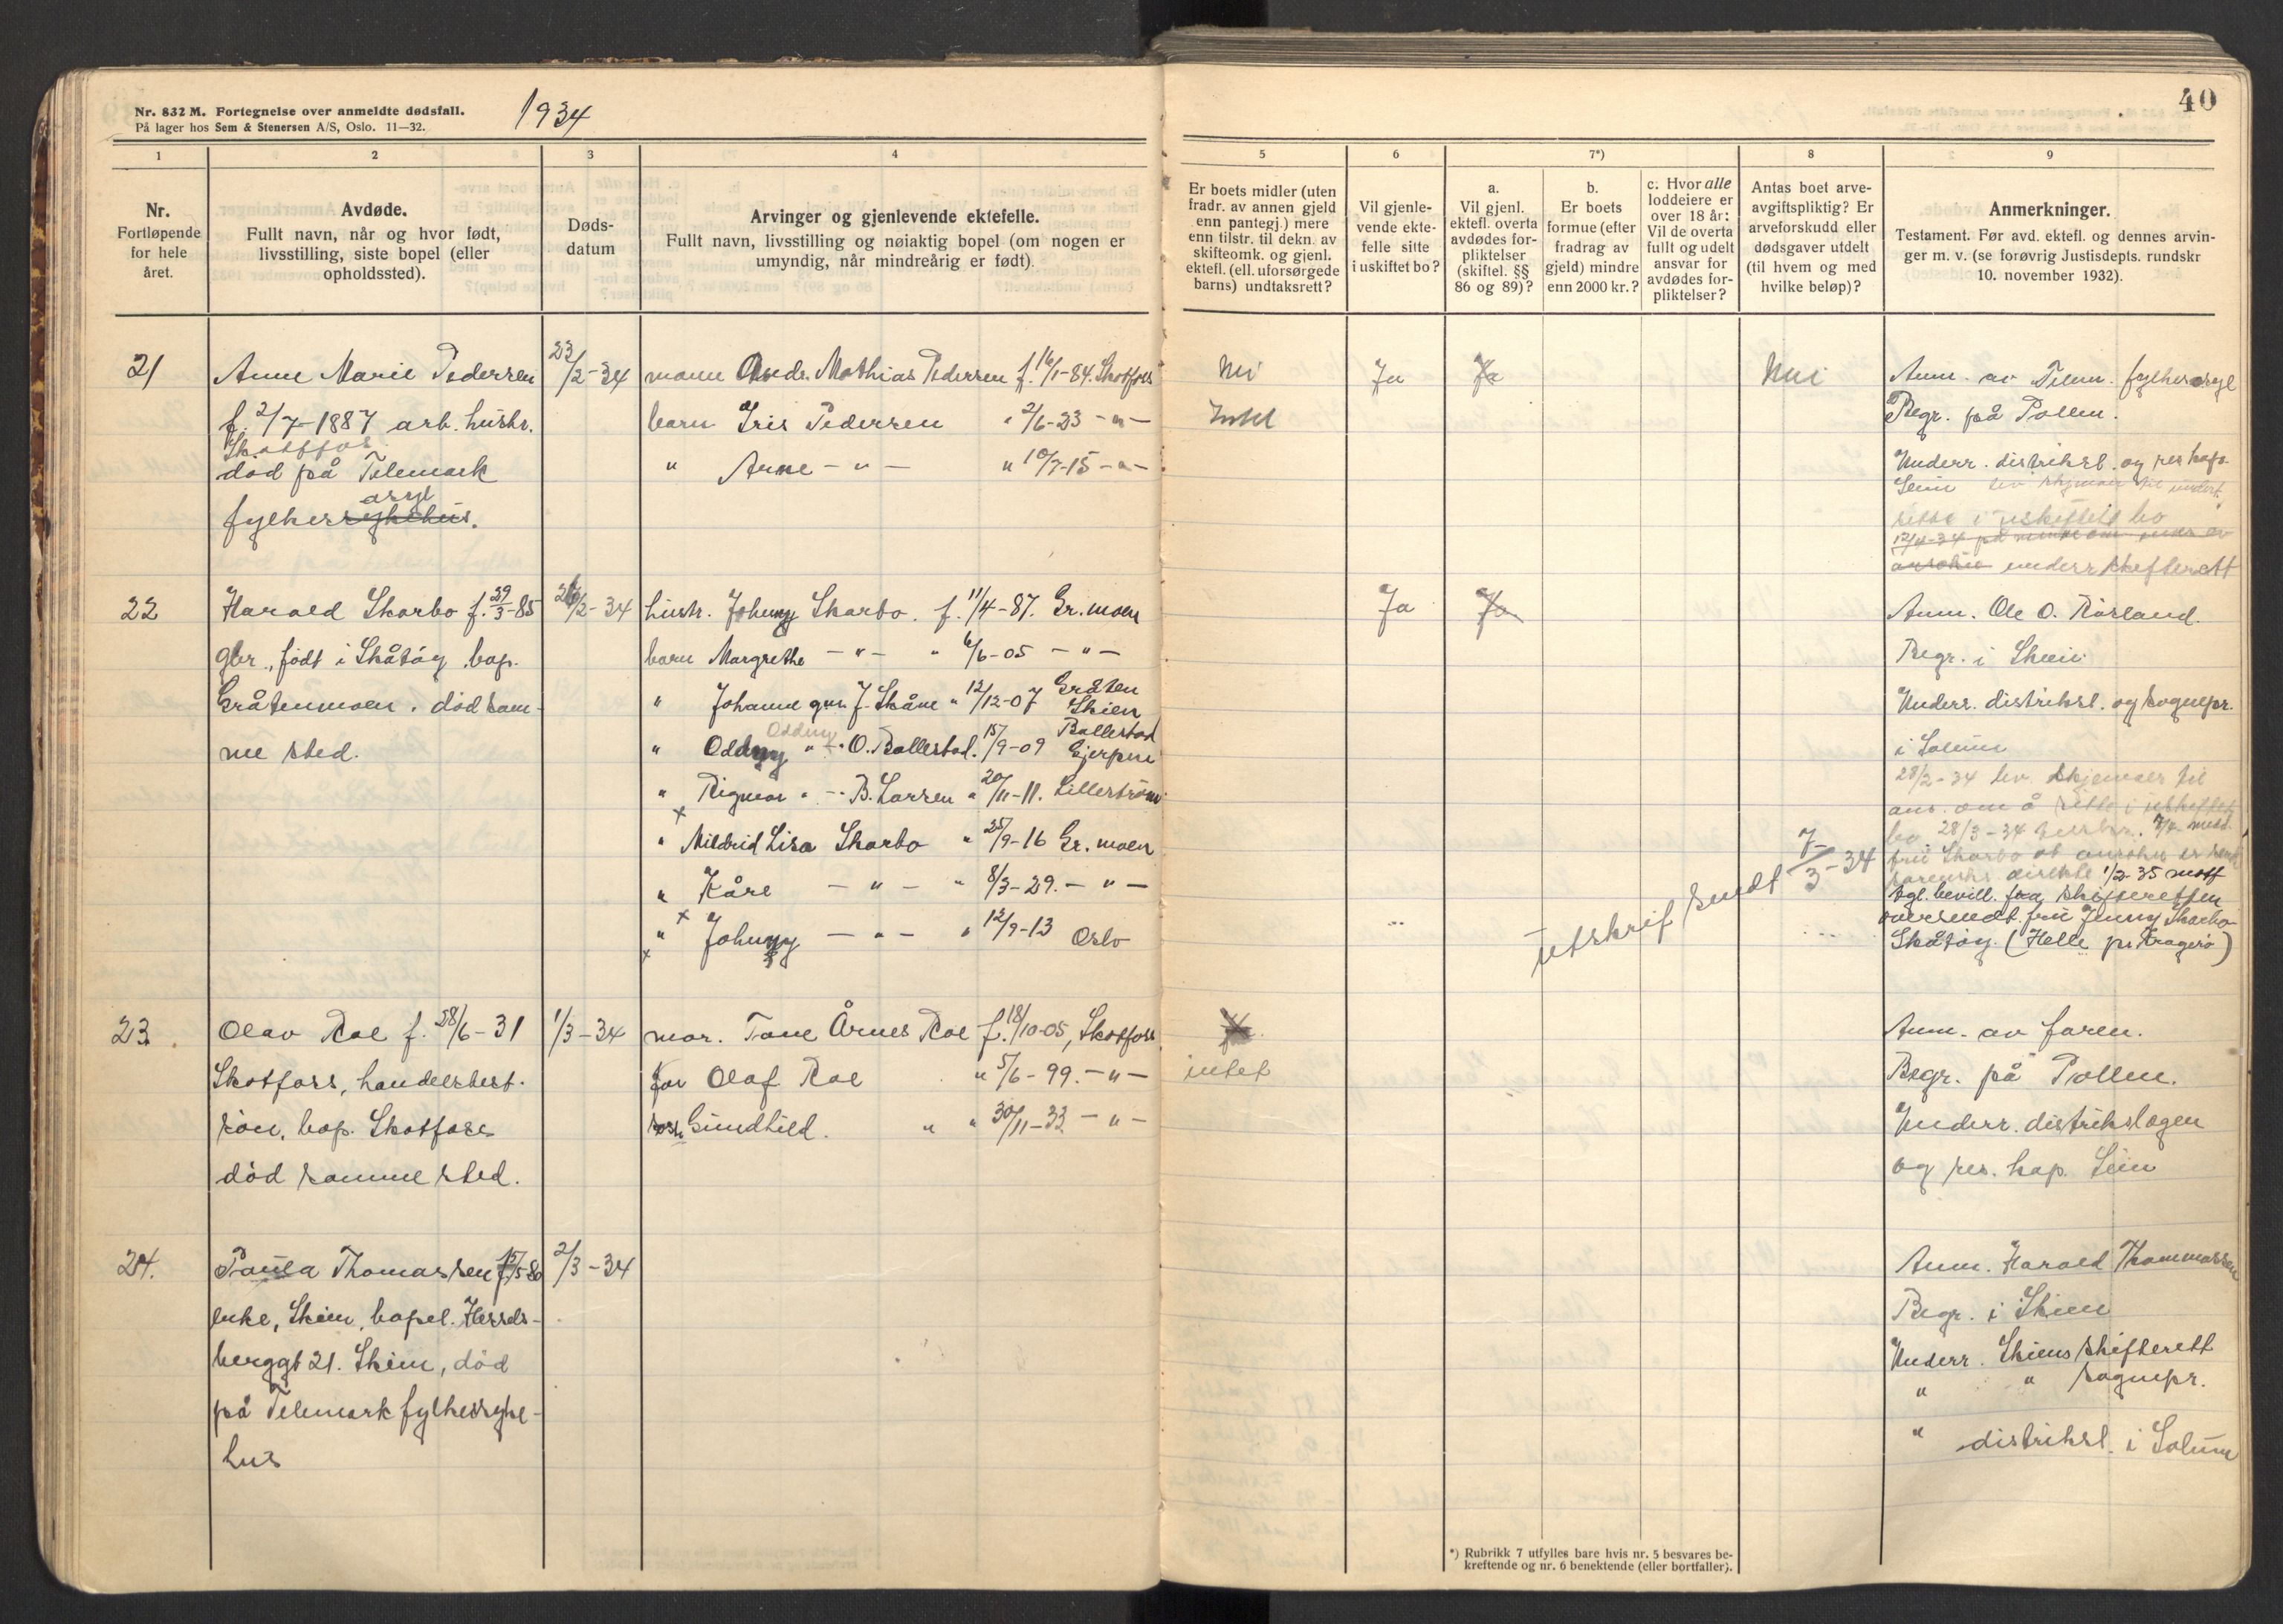 Nr. 832 M. Fortegnelse over anmeldte dødsfall.
På lager hos Sem & Stenersen A/S, Oslo. 11—32.
1934
1
2
3
4
Nr.
Fortløpende
for hele
året.
Avdøde.
Fullt navn, når og hvor født,
livsstilling, siste bopel (eller
opholdssted).
Døds-
datum
Arvinger og gjenlevende ektefelle.
Fullt navn, livsstilling og nøiaktig bopel (om nogen er
umyndig, når mindreårig er født).
21
Anne Marie Pedersen
f. 2/7-1887 arb. hustr.
Skotfos
død på Telemark
asyl
fylkessykehus.
23/2-34
mann Andr. Mathias Pedersen f. 16/1-84. Skotfoss
barn Iris Pedersen " 2/6-23 - " -
" Arne - " - " 10/7-15 - " -
22
Harald Skarbo f. 29/3-85
gbr., født i Skåtøy, bop.
Gråtenmoen. død sam-
me sted.
26/2-34
hustr. Johnny Skarbo. f. 11/4-87. Gr.moen
barn Margrethe - " - " 6/6-05 - " -
" Johanne gm. J. Skåne " 12/12-07 Gråten Skien
Oddny
" Oddny " - " O. Ballestad. 15/9-09 Ballestad Gjerpen
" Rigmor " - " B. Larsen " 20/11-11. Lillestrøm
" Mildrid Lisa Skarbo " 25/9-16 Gr. moen
" Kåre - " - " 8/3-29. - " -
" Johnny - " - " 12/9-13 Oslo
23.
Olav Roe f. 28/6-31
Skotfoss, handelsbest.
søn, bop. Skotfoss
død samme sted.
1/3-34
mor. Tone Årnes Roe f. 18/10-05, Skotfoss
far Olaf Roe " 5/6-99. - " -
søsk. Gundhild. " " 30/11-33 - " -
24.
Paula Thomassen f. 15/5-80
enke, Skien, bopel. Hessels-
berggt 21. Skien, død
på Telemark fylkessyke-
hus
2/3-34
40
5
6
7*)
8
9
Er boets midler (uten
fradr. av annen gjeld
enn pantegj.) mere
enn tilstr. til dekn. av
skifteomk. og gjenl.
ektefl. (ell. uforsørgede
barns) undtaksrett?
Vil gjenle-
vende ekte-
felle sitte
i uskiftet bo?
a.
Vil gjenl.
ektefl. overta
avdødes for-
pliktelser
(skiftel. §§
86 og 89)?
b.
Er boets
formue (efter
fradrag av
gjeld) mindre
enn 2000 kr.?
c. Hvor alle
loddeiere er
over 18 år:
Vil de overta
fullt og udelt
ansvar for
avdødes for-
pliktelser?
Antas boet arve-
avgiftspliktig? Er
arveforskudd eller
dødsgaver utdelt
(til hvem og med
hvilke beløp)?
Anmerkninger.
Testament. Før avd. ektefl. og dennes arvin-
ger m. v. (se forøvrig Justisdepts. rundskr
10. november 1932).
Nei
Intet
Ja
Ja
Nei
Anm. av Telem. fylkesasyl
Begr. på Pollen.
Underr. distriksl. og res kap.
Seim lev skjemaer til underr.
sitte i uskiftet bo
12/4-34
underr skifterett
Ja
Ja
Anm. Ole O. Rørland.
Begr. i Skien
Underr. distriksl. og sognepr.
i Solum
28/2-34 lev. skjemaer til
ans. om å sitte i uskiftet
bo 28/3-34
fru Skarbo at
direkte 1/2-35 mott
tgl. bevill. fra skifteretten
oversendt fru Jenny Skarbo
Skåtøy. (Helle pr. Kragerø)
utskrift sendt 7/3-34
Ja
intet
Anm. av faren.
Begr. på Pollen.
Underr. distrikslegen
og res. kap. Seim
Anm. Harald Thommassen
Begr. i Skien
Underr. Skiens skifterett
" " sognepr.
" distriksl. i Solum
*) Rubrikk 7 utfylles bare hvis nr. 5 besvares be-
kreftende og nr. 6 benektende (eller bortfaller).